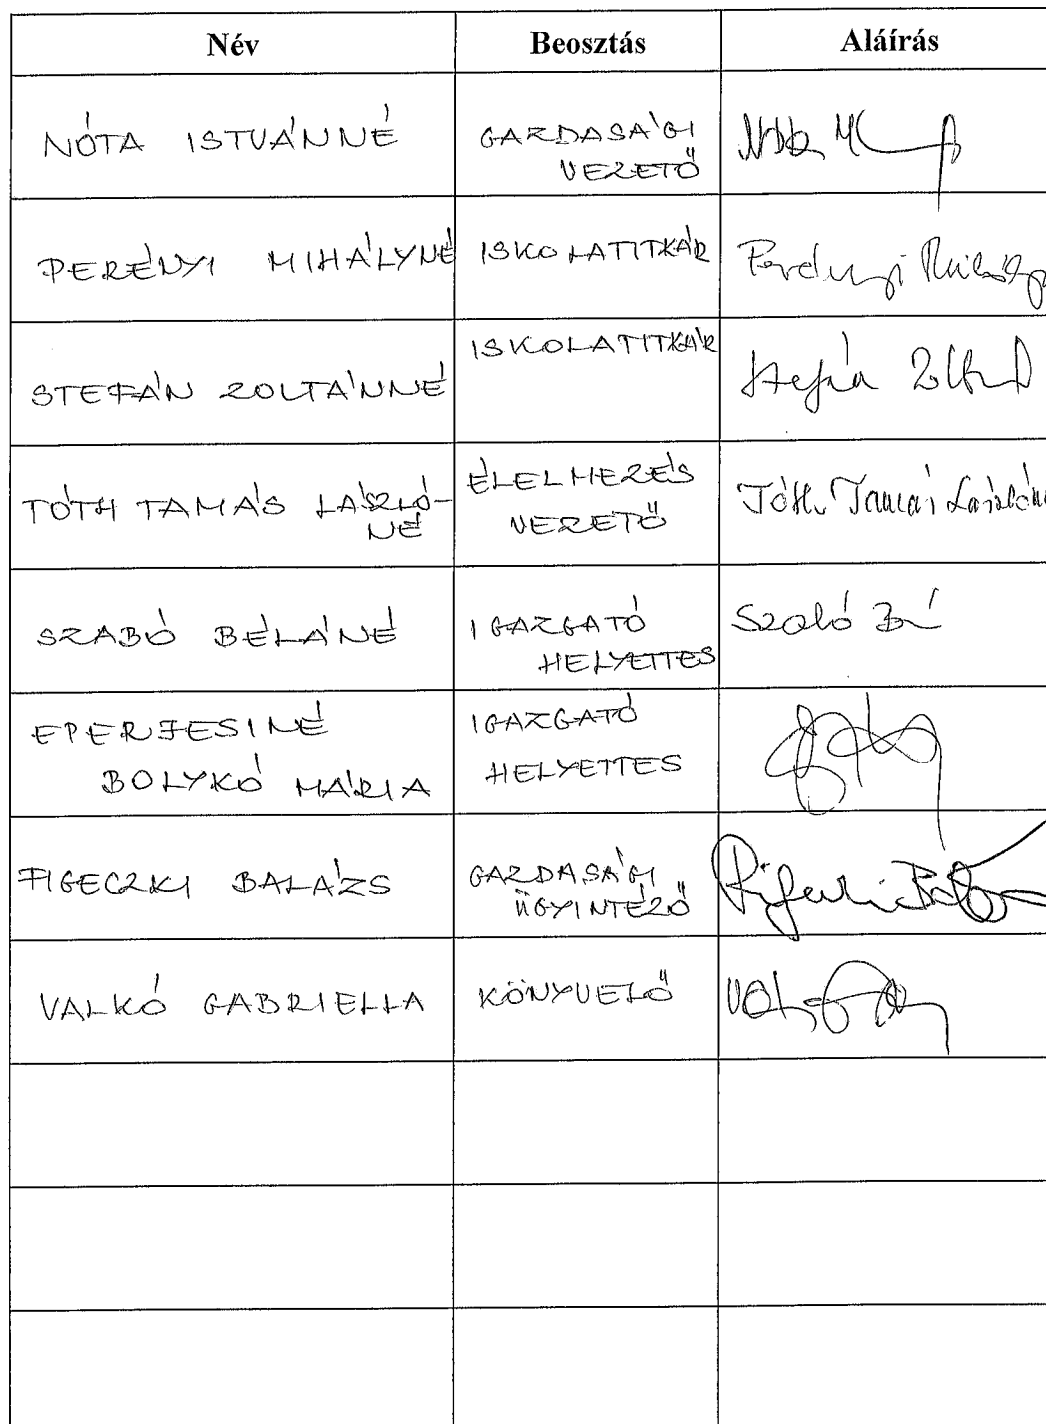 Név Beosztás Aláírás
NÓTA ISTVÁNNÉ GAZDASÁGI
VEZETŐ
PERÉNYI MIHÁLYNÉ ISKOLATITKÁR
ISKOLATITKÁR
STEFÁN ZOLTÁNNÉ
TÓTH TAMÁS LÁSZLÓ-
NÉ
ÉLELMEZÉS
VEZETŐ
Tóth Tamás Lászlóné
SZABÓ BÉLÁNÉ
IGAZGATÓ
HELYETTES
Szabó Bé
EPERJESINÉ
BOLYKÓ MÁRIA
IGAZGATÓ
HELYETTES
FIGECZKI BALÁZS
GAZDASÁGI
ÜGYINTÉZŐ
VALKÓ GABRIELLA KÖNYVELŐ